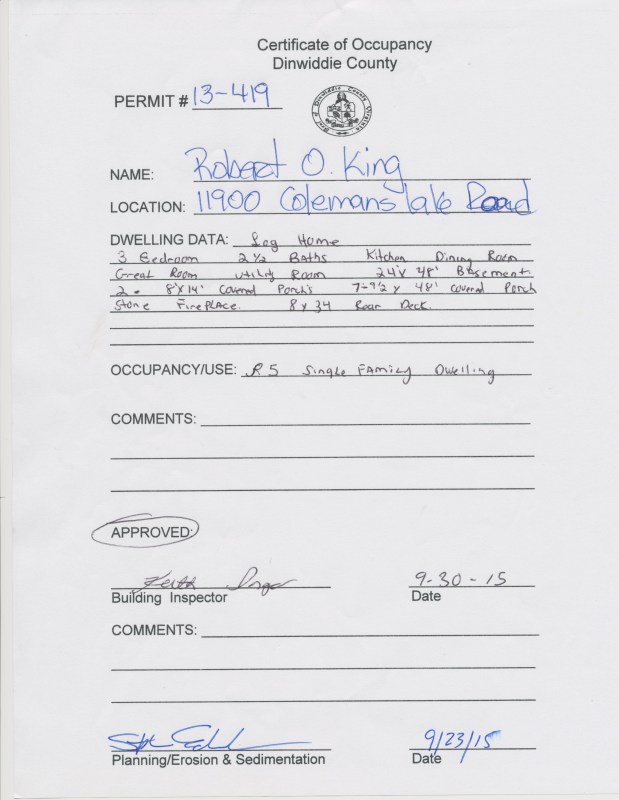 Certificate of Occupancy
Dinwiddie County
PERMIT # 13-419
NAME: Robert O. King
LOCATION: 11900 Colemans lake Road
DWELLING DATA: Log Home
3 Bedroom 2 1/2 Baths Kitchen Dining Room
Great Room utility Room 24' x 48' Basement
2 - 8' x 14' Covered Porch's 7-9 1/2 x 48' covered Porch
Stone FirePlace. 8 x 34 Rear Deck.
OCCUPANCY/USE: R5 Single FAmily Dwelling
COMMENTS:
APPROVED:
Keith
9-30-15
Building Inspector Date
COMMENTS:
9/23/15
Planning/Erosion & Sedimentation Date